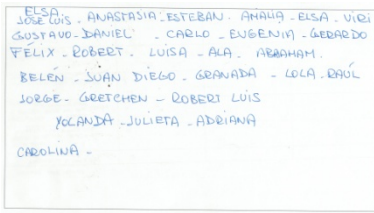 ELSA.
JOSE LUIS. ANASTASIA-ESTEBAN. AMALIA-ELSA-VIRI
GUSTAVO-DANIEL - CARLO-EUGENIA-GERARDO
FÉLIX-ROBERT. LUISA-ALA. ABRAHAM.
BELÉN-JUAN DIEGO-GRANADA-LOLA-RAÚL
JORGE-GRETCHEN-ROBERT LUIS
YOLANDA-JULIETA-ADRIANA
CAROLINA-